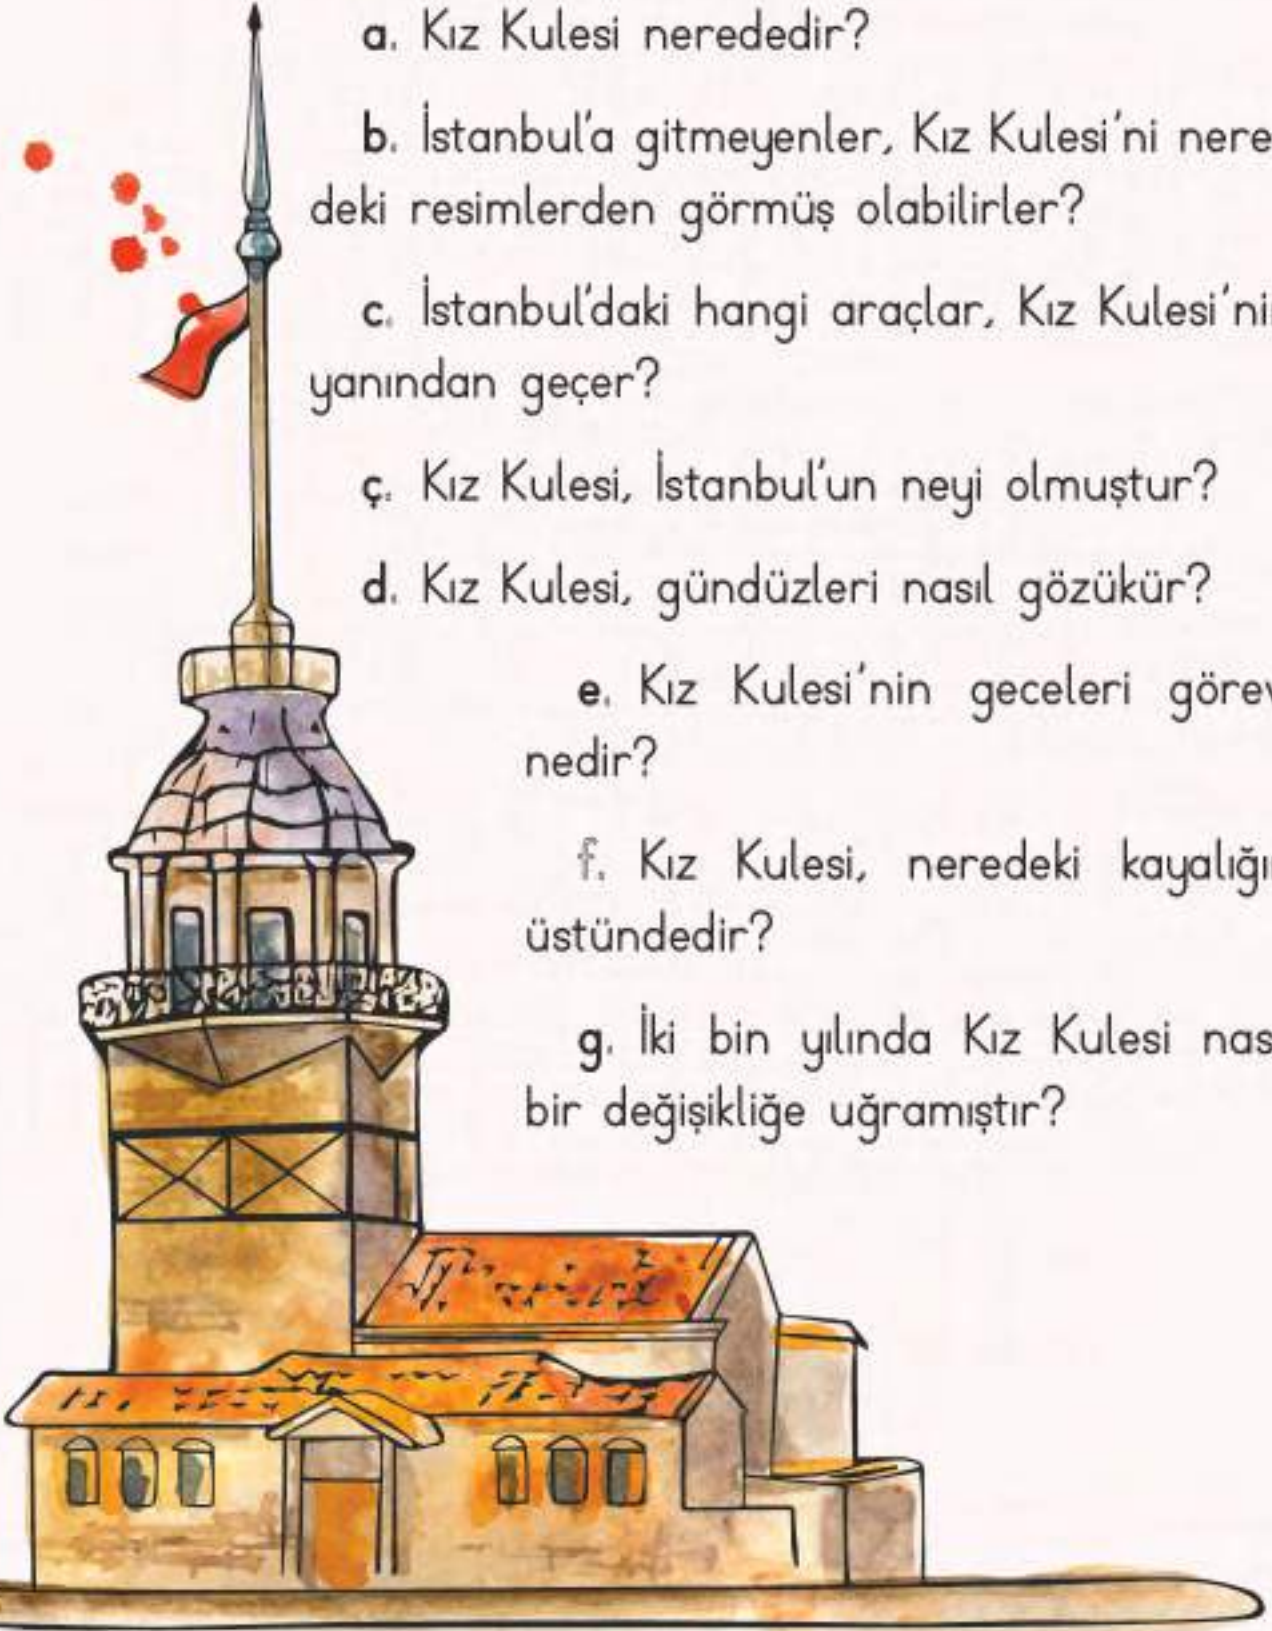 a. Kız Kulesi nerededir?
b. İstanbul'a gitmeyenler, Kız Kulesi'ni nere
deki resimlerden görmüş olabilirler?
c. İstanbul'daki hangi araçlar, Kız Kulesi'nin
yanından geçer?
ç. Kız Kulesi, İstanbul'un neyi olmuştur?
d. Kız Kulesi, gündüzleri nasıl gözükür?
e. Kız Kulesi'nin geceleri görev
nedir?
f. Kız Kulesi, neredeki kayalığı
üstündedir?
g. İki bin yılında Kız Kulesi nas
bir değişikliğe uğramıştır?